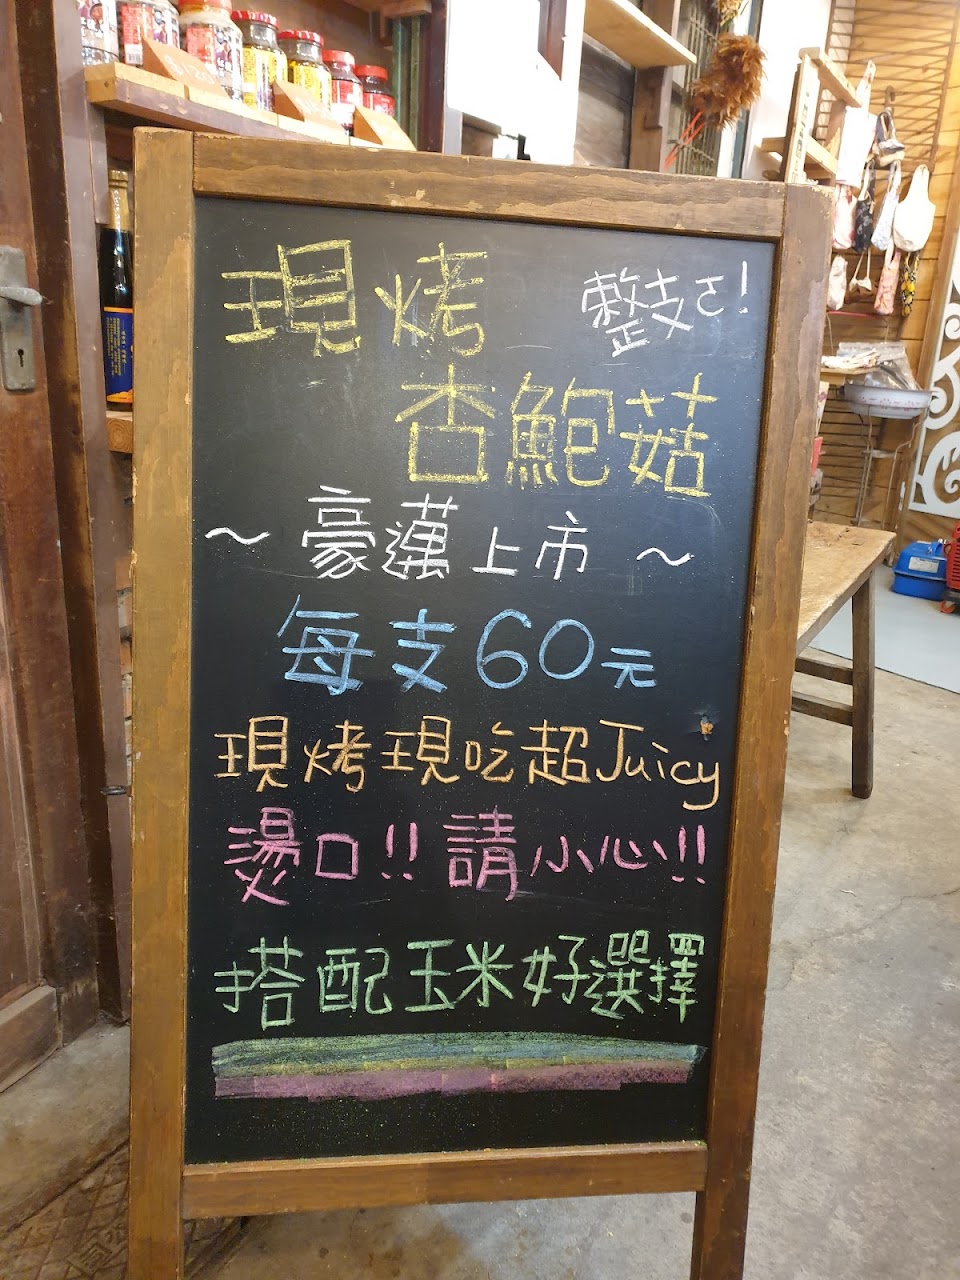 現烤 整支ㄜ!
杏鮑菇
~豪邁上市~
每支60元
現烤現吃超Juicy
燙口!!請小心!!
搭配玉米好選擇